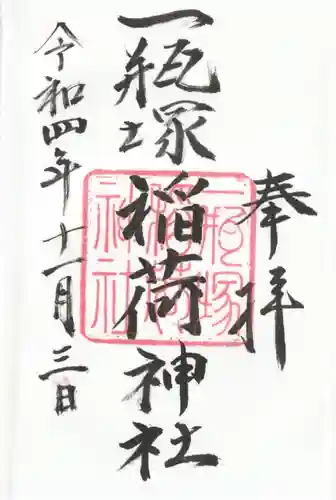 奉拝
一瓶塚
稲荷
神社
一瓶塚稲荷神社
令和四年十一月三日